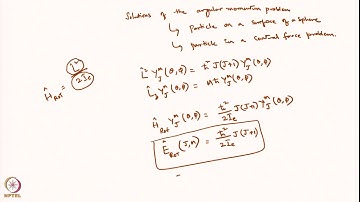 Solutions of the angular momentum problem
↳ Particle on a surface of a sphere
↳ particle in a central force problem.
L̂² Y_J^m (θ,φ) = ħ² J(J+1) Y_J^m (θ,φ)
L̂_z Y_J^m (θ,φ) = mħ Y_J^m (θ,φ)
Ĥ_Rot = L̂² / 2I_e
Ĥ_Rot Y_J^m (θ,φ) = ħ²/2I_e J(J+1) Y_J^m (θ,φ)
Ê_Rot (J,m) = ħ²/2I_e J(J+1)
NPTEL